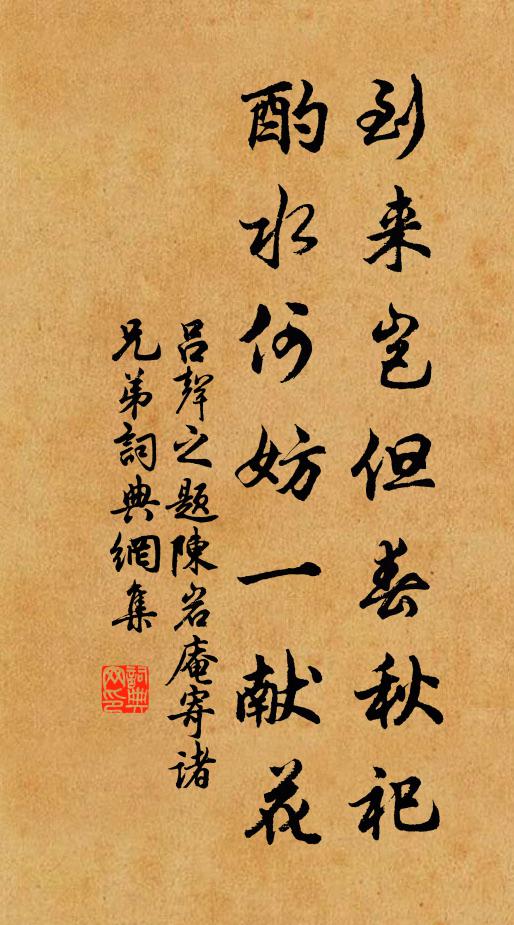 到来岂但春秋祀
酌水何妨一献花
吕声之题陳岩庵寄诸
兄弟詞典網集
詞典
网印